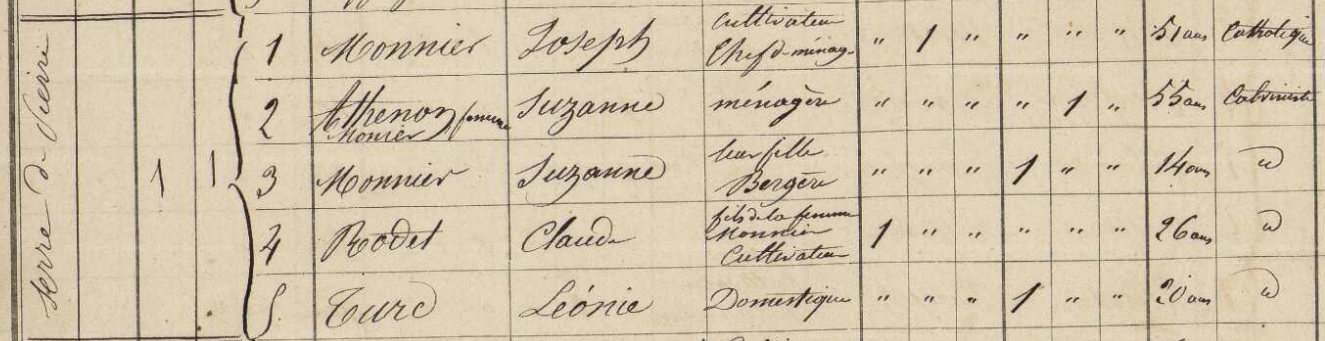 Serre de Pierre
1 1
1 Monnier Joseph Cultivateur Chef de ménage " 1 " " " " 51 ans Catholique
2 Athenon femme Monier Suzanne ménagère " " " " 1 " 55 ans Calviniste
3 Monnier Suzanne leur fille Bergère " " " 1 " " 14 ans id
4 Rodet Claude fils de la femme Monnier Cultivateur 1 " " " " " 26 ans id
5 Turc Léonie Domestique " " " 1 " " 20 ans id